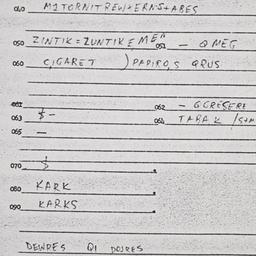 040 M1TORNITREW+ERNS+ABES
050 ZINTIK=ZUNTIKEMER 051 — QMEG
060 CIGARET ) PAPIRO,S QRUS
062 — GGRESERE
063 $ — 064 TABAK /S+M
065 —
070 $
080 KARK
090 KARKS
DEWRES QI DOJRES